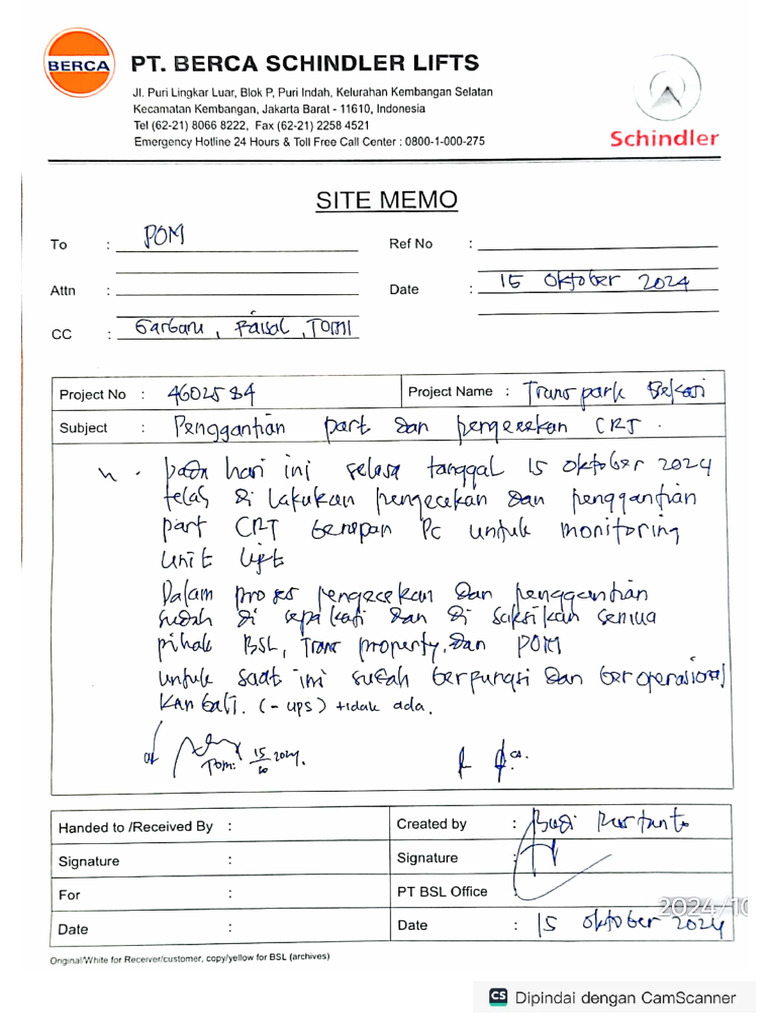 BERCA
PT. BERCA SCHINDLER LIFTS
Jl. Puri Lingkar Luar, Blok P, Puri Indah, Kelurahan Kembangan Selatan
Kecamatan Kembangan, Jakarta Barat - 11610, Indonesia
Tel (62-21) 8066 8222, Fax (62-21) 2258 4521
Emergency Hotline 24 Hours & Toll Free Call Center : 0800-1-000-275
Schindler
SITE MEMO
To : POM
Ref No :
Attn :
Date : 15 Oktober 2024
CC : Barbaru, Faisal, TOMI
Project No : 4602584
Project Name : Trans park Bekasi
Subject : Penggantian part dan pengecekan CRT.
pada hari ini selasa tanggal 15 oktober 2024
telas di lakukan pengecekan dan penggantian
part CRT berupan PC untuk monitoring
unit lift
Dalam proses pengecekan dan penggantian
sudah di sepakati dan di saksikan semua
pihak BSL, Trans property, dan POM
untuk saat ini sudah berfungsi dan beroperasional
kambali. (- ups) tidak ada.
Pom: 15/10 2024.
Handed to /Received By :
Created by :
Signature :
Signature :
For :
PT BSL Office :
Date :
Date : 15 oktober 2024
2024/10
Original/White for Receiver/customer, copy/yellow for BSL (archives)
CS Dipindai dengan CamScanner